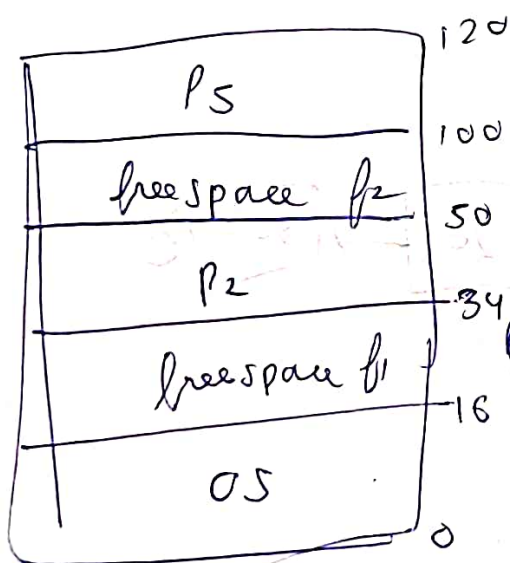 120
P5
100
freespace f2
50
P2
34
freespace f1
16
OS
0